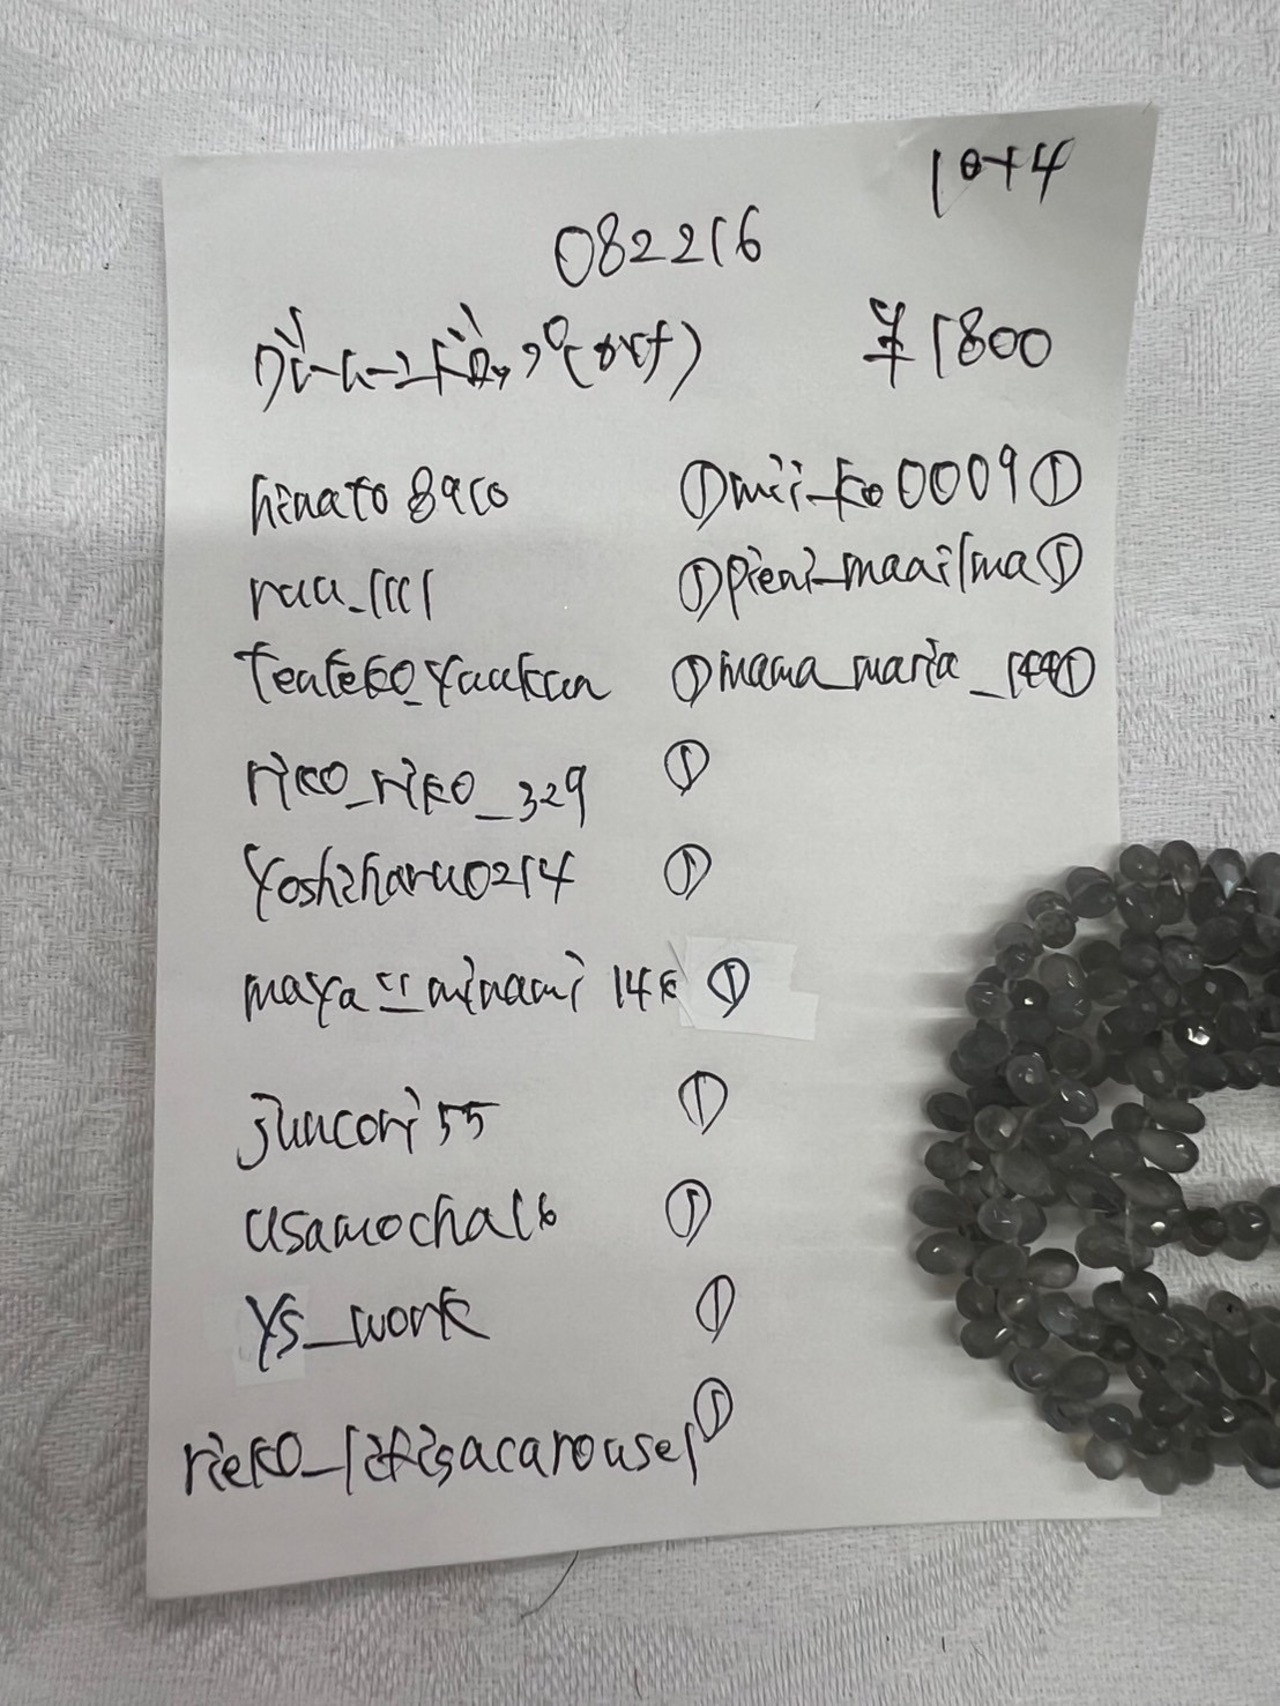 10+4
082216
グレームーンドロップ(orf) ¥1800
hinato8910 ① mii_ko0009 ①
ruu_1111 ① pieni_maailma ①
tenteko_yuukun ① mama_maria_1441 ①
riko_riko_329 ①
yoshiharu0214 ①
maya_minami ①
juncori55 ①
usamocha16 ①
ys_work ①
rieko_lifeisacarousel ①